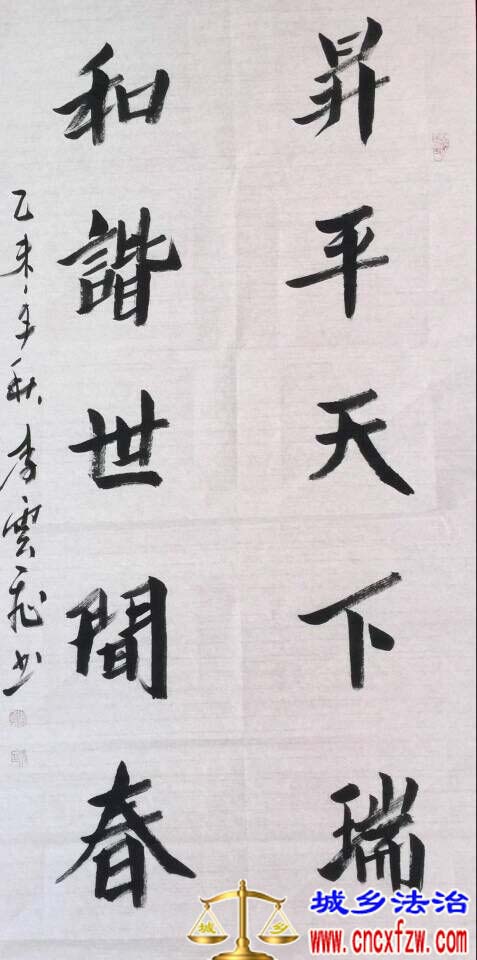 昇平天下瑞
和諧世間春
乙未年秋李雲飛书
城 乡
城乡法治
www.cncxfzw.com